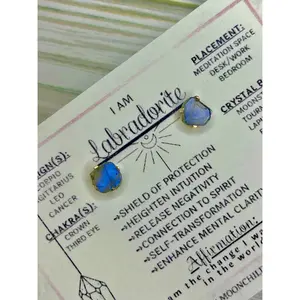 PLACEMENT:
MEDITATION SPACE
DESK/WORK
BEDROOM
I AM
Labradorite
CRYSTAL
MOONS
TOUR
LAP
PROT
IGN(S):
ORPIO
GITTARIUS
LEO
CANCER
CHAKRA(S):
CROWN
THIRD EYE
→SHIELD OF PROTECTION
→HEIGHTEN INTUITION
→RELEASE NEGATIVITY
→CONNECTION TO SPIRIT
→SELF-TRANSFORMATION
→ENHANCE MENTAL CLARITY
Affirmation:
am the change I w
in the world
MOONCHIL